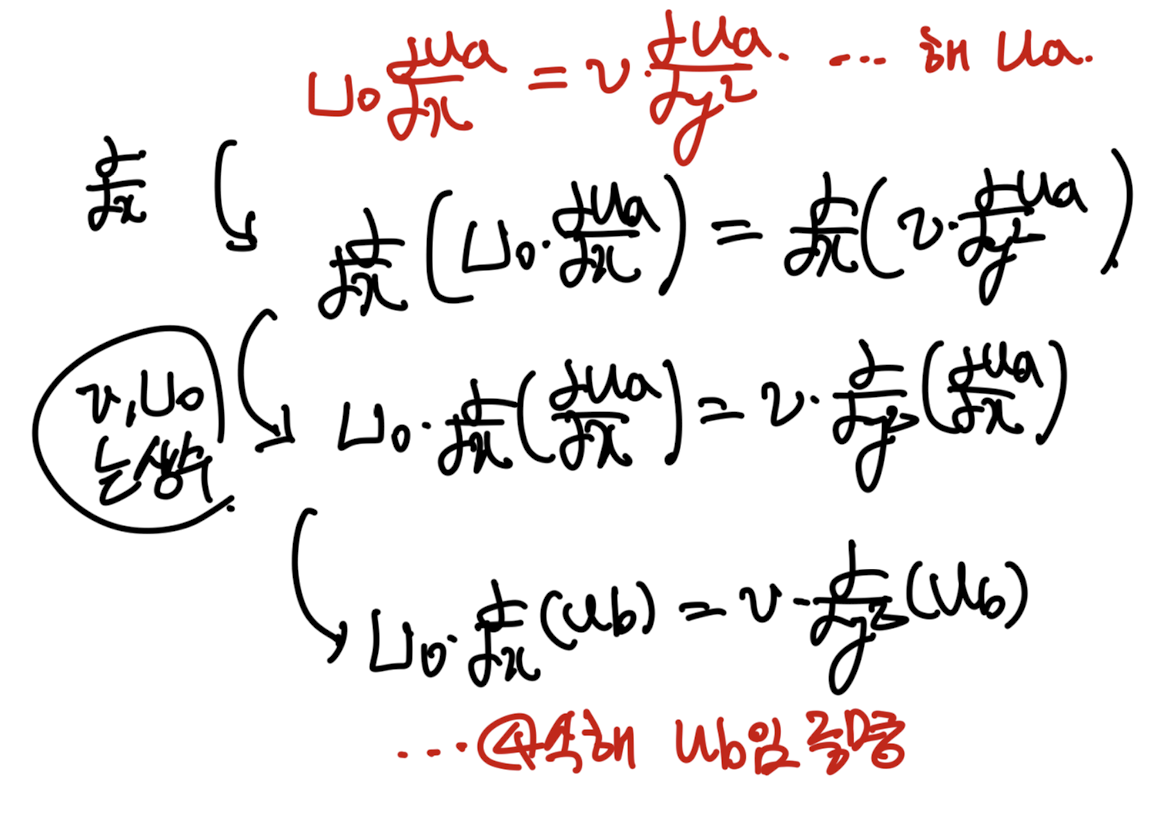 U₀ ∂Ua/∂x = ν·∂Ua/∂y². ... 해 Ua.
∂/∂x
∂/∂x (U₀·∂Ua/∂x) = ∂/∂x (ν·∂Ua/∂y²)
ν, U₀
는 생략.
U₀·∂/∂x (∂Ua/∂x) = ν·∂/∂y² (∂Ua/∂x)
U₀·∂/∂x (Ub) = ν·∂/∂y² (Ub)
... ④식 해 Ub임 증명